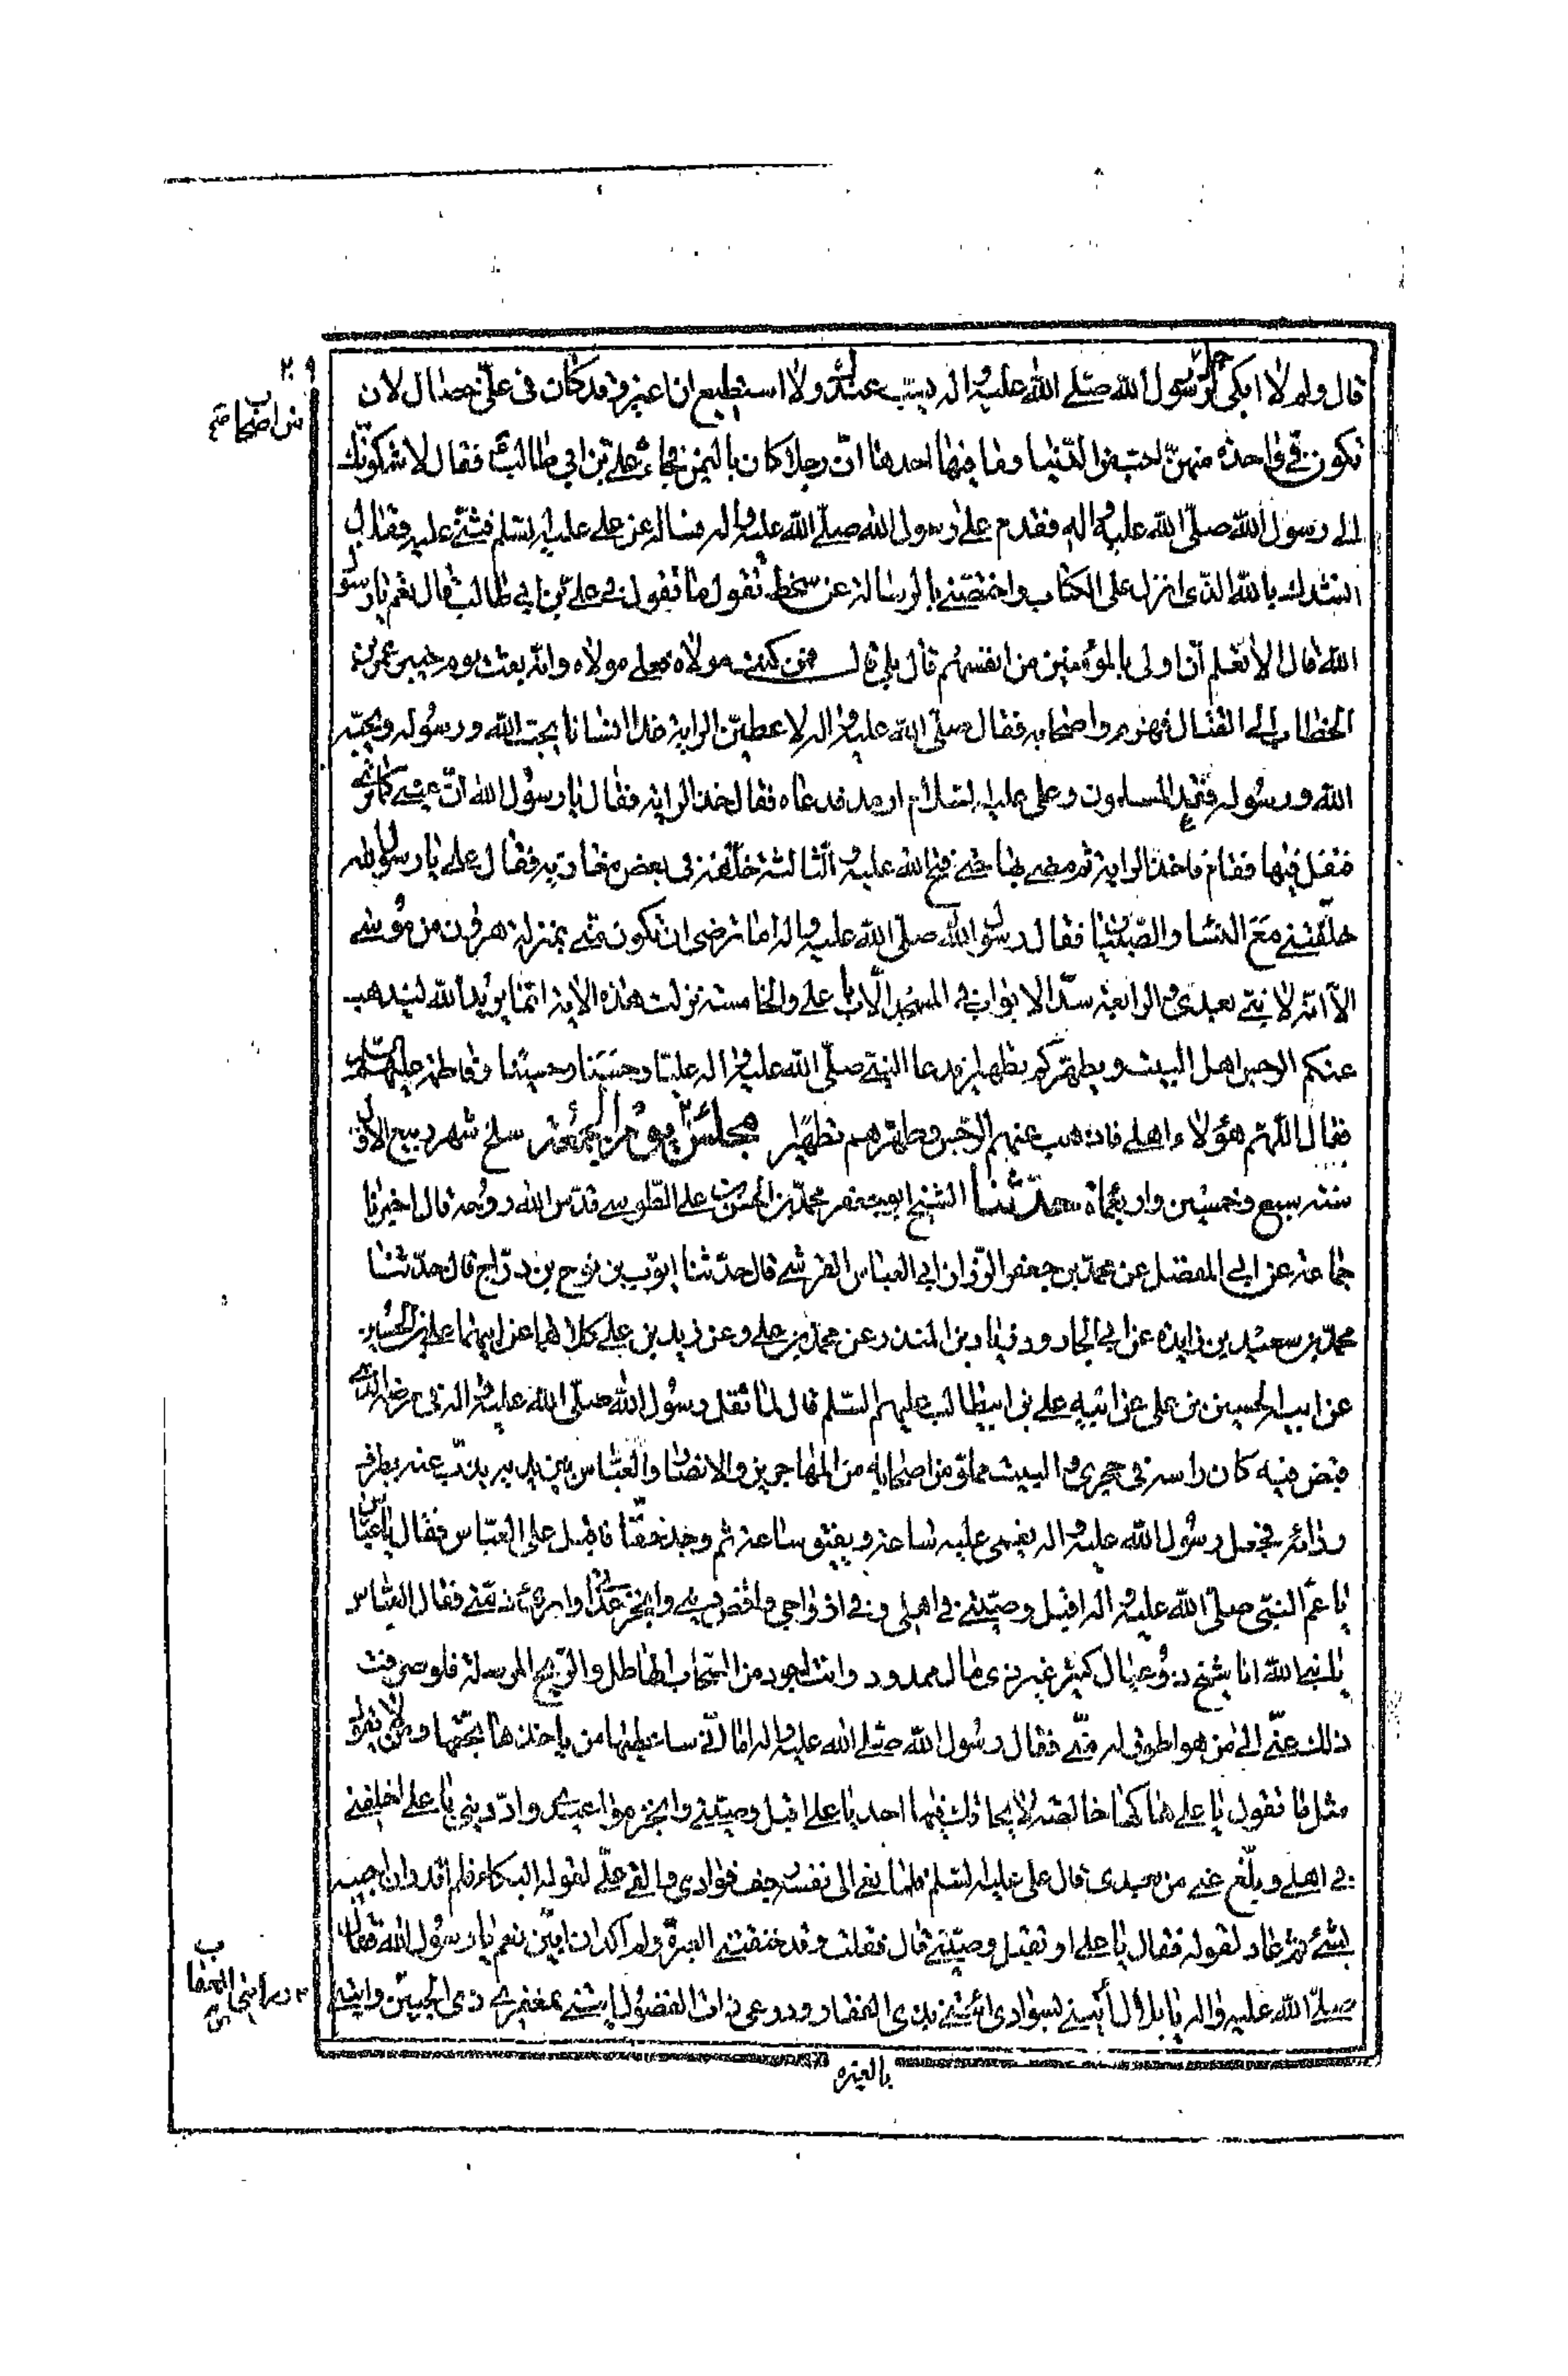 قال ولم لا ابكى لرجل من رسول الله صلى الله عليه واله يسب عندك ولا استطيع ان اغير وقد كان فى على خصال لان
تكون فى واحدة منهن احب من الدنيا وما فيها احدها ان رجلا كان باليمن فجاءه على بن ابى طالب فقال لاشكونك
الى رسول الله صلى الله عليه واله فقدم على رسول الله صلى الله عليه واله فساله عن على عليه السلم فشنى عليه فقال
انشدك بالله الذى انزل على الكتاب واختصنى بالرسالة عن سخط تقول ما تقول فى على بن ابى طالب قال نعم يا رسول
الله قال الا تعلم ان اولى بالمؤمنين من انفسهم قال بلى قال فمن كنت مولاه فعلى مولاه وانه بعث يوم خيبر عمر بن
الخطاب الى القتال فهزم واصحابه فقال صلى الله عليه واله لاعطين الراية غدا انسانا يحب الله ورسوله ويحبه
الله ورسوله فقعد المسلمون وعلى عليه السلام ارمد فدعاه فقال خذ الراية فقال يا رسول الله ان عينى كما ترى
فتفل فيها فقام فاخذ الراية ثم مضى بها حتى فتح الله عليه والثالثة خلفه فى بعض مغازيه فقال على يا رسول الله
خلفتنى مع النساء والصبيان فقال رسول الله صلى الله عليه واله اما ترضى ان تكون منى بمنزلة هرون من موسى
الا انه لا نبى بعدى والرابعة سد الابواب فى المسجد الا باب على والخامسة نزلت هذه الاية انما يريد الله ليذهب
عنكم الرجس اهل البيت ويطهركم تطهيرا فدعا النبى صلى الله عليه واله عليا وحسنا وحسينا وفاطمة عليهم السلم
فقال اللهم هؤلاء اهلى فاذهب عنهم الرجس وطهرهم تطهيرا مجلس يوم الجمعة سلخ شهر ربيع الاول
سنة سبع وخمسين واربعمائة حدثنا الشيخ ابو جعفر محمد بن الحسن بن على الطوسى قدس الله روحه قال اخبرنا
جماعة عن ابى المفضل عن محمد بن جعفر الرزاز ابى العباس القرشى قال حدثنا ايوب بن نوح بن دراج قال حدثنا
محمد بن سعيد بن زايدة عن ابى الجارود زياد بن المنذر عن محمد بن على وعن زيد بن على كلاهما عن ابيهما على بن الحسين
عن ابيه الحسين بن على عن ابيه على بن ابيطالب عليهم السلم قال لما ثقل رسول الله صلى الله عليه واله فى مرضه الذى
قبض فيه كان راسه فى حجرى والبيت مملو من اصحابه من المهاجرين والانصار والعباس بين يديه يذب عنه بطرف
ردائه فجعل رسول الله عليه واله يغمى عليه ساعة ويفيق ساعة ثم وجد خفا فاقبل على العباس فقال يا عباس
يا عم النبى صلى الله عليه واله اقبل وصيتى فى اهلى وفى ازواجى واقض دينى وانجز عداتى وابرئ ذمتى فقال العباس
يا نبى الله انا شيخ ذو عيال كثير غير ذى مال ممدود وانت اجود من السحاب الهاطل والريح المرسلة فلو صرفت
ذلك عنى الى من هو اطوق له منى فقال رسول الله صلى الله عليه واله اما انى ساعطيها من ياخذها بحقها ومن لا يقول
مثل ما تقول يا على هاكها خالصة لا يحاقك فيها احد يا على اقبل وصيتى وانجز مواعيدى واد دينى يا على اخلفنى
فى اهلى وبلغ عنى من بعدى قال على عليه السلم فلما نعى الى نفسه رجف فؤادى والقى على لقوله البكاء فلم اقدر ان اجيبه
بشئ ثم عاد لقوله فقال يا على او تقبل وصيتى قال فقلت وقد خنقتنى العبرة ولم اكد ان ابين نعم يا رسول الله فقال
صلى الله عليه واله يا بلال ائتنى بسوادى ائتنى بذى الفقار ودرعى ذات الفضول ائتنى بمغفرى ذى الجبين ورايتى
بالعيره